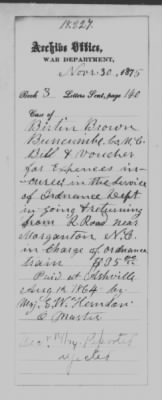 18227.
Archive Office,
WAR DEPARTMENT,
Nov. 30, 1875
Book 3 Letters Sent, page 140
Case of
Berlin Brown
Buncombe Co. N.C.
Bill & Voucher
for Expenses in-
curred in the Service
of Ordnance Dept
in going & returning
from R. Road near
Morganton N.C.
in Charge of Ordnance
train $95
Paid at Asheville
Aug 1864 by
Maj. E. W. Herndon
Q Master